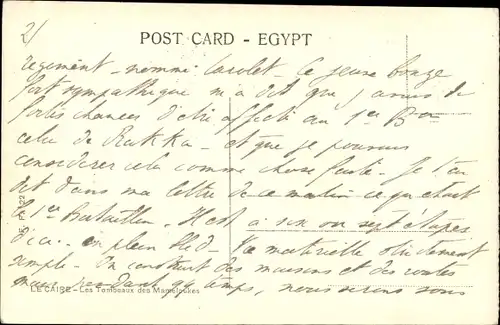 2/
POST CARD - EGYPT
régiment - nommé Carolet - Ce jeune bonze
fort sympathique m'a dit que j'avais de
fortes chances d'être affecté au 1er Bon
celui de Rakka - et que je pouvais
considérer cela comme chose faite. Je t'ai
dit dans ma lettre de ce matin ce qu'était
le 1er Bataillon. Il est à six ou sept étapes
d'ici - en plein bled - Vie matérielle
simple - On construit des maisons et des routes
mais pendant qq temps, nous serons sous
LE CAIRE - Les Tombeaux des Mamelouks